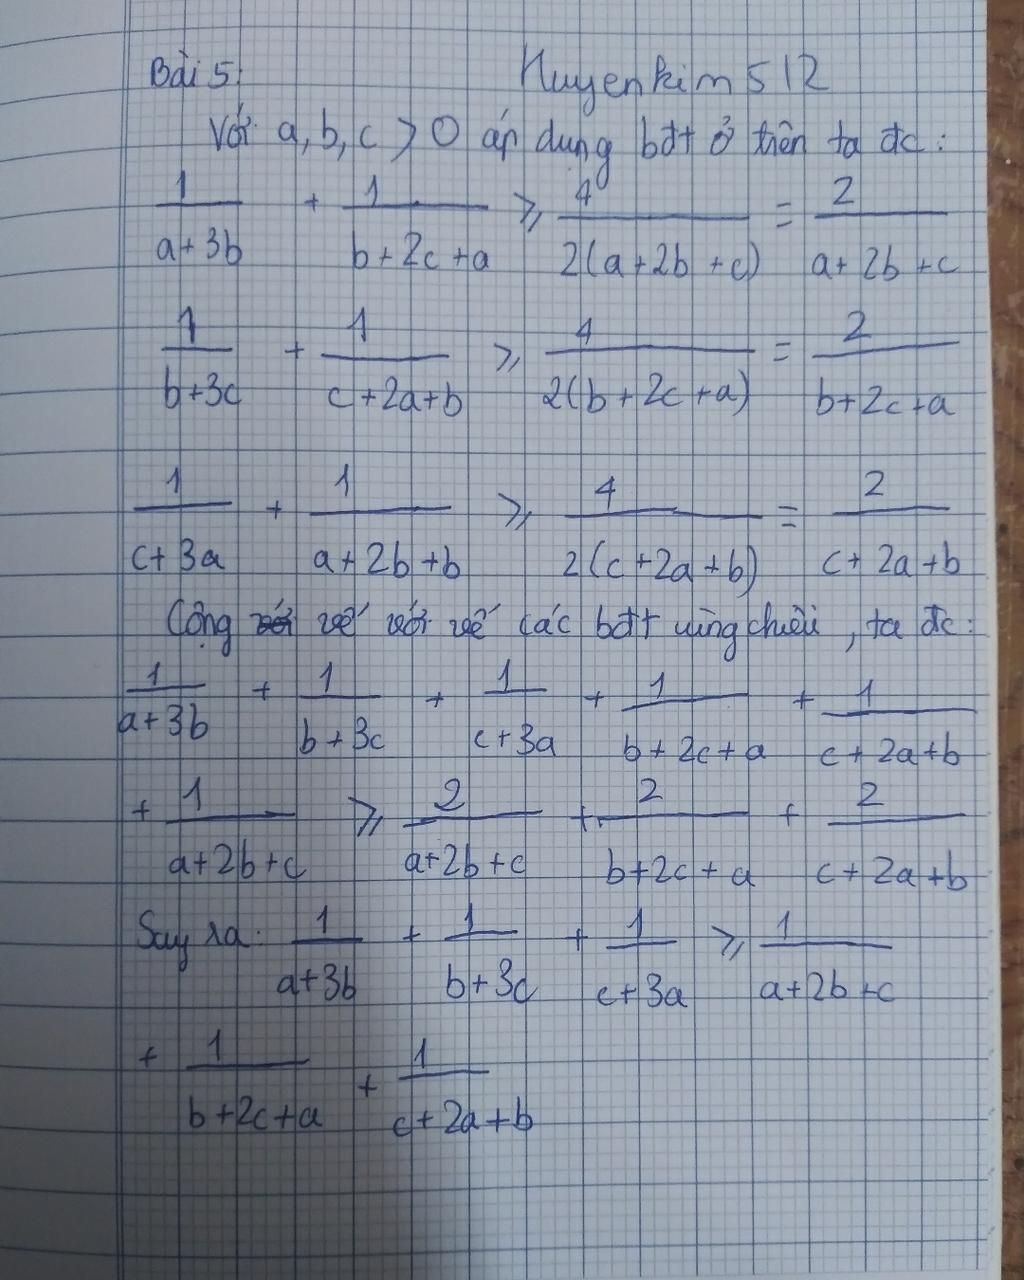 Bài 5: Huyenkim512
Với a, b, c > 0 áp dụng bđt ở trên ta đc:
1/(a+3b) + 1/(b+2c+a) ≥ 4/(2(a+2b+c)) = 2/(a+2b+c)
1/(b+3c) + 1/(c+2a+b) ≥ 4/(2(b+2c+a)) = 2/(b+2c+a)
1/(c+3a) + 1/(a+2b+b) ≥ 4/(2(c+2a+b)) = 2/(c+2a+b)
Cộng vế với vế các bđt cùng chiều, ta đc:
1/(a+3b) + 1/(b+3c) + 1/(c+3a) + 1/(b+2c+a) + 1/(c+2a+b)
+ 1/(a+2b+c) ≥ 2/(a+2b+c) + 2/(b+2c+a) + 2/(c+2a+b)
Suy ra: 1/(a+3b) + 1/(b+3c) + 1/(c+3a) ≥ 1/(a+2b+c)
+ 1/(b+2c+a) + 1/(c+2a+b)